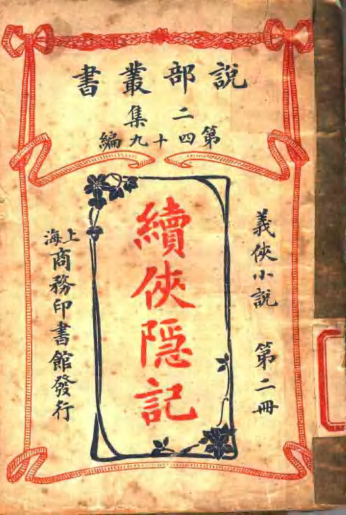 說部叢書
二集
第四十九編
義俠小說 第二冊
續俠隐記
上海商務印書館發行